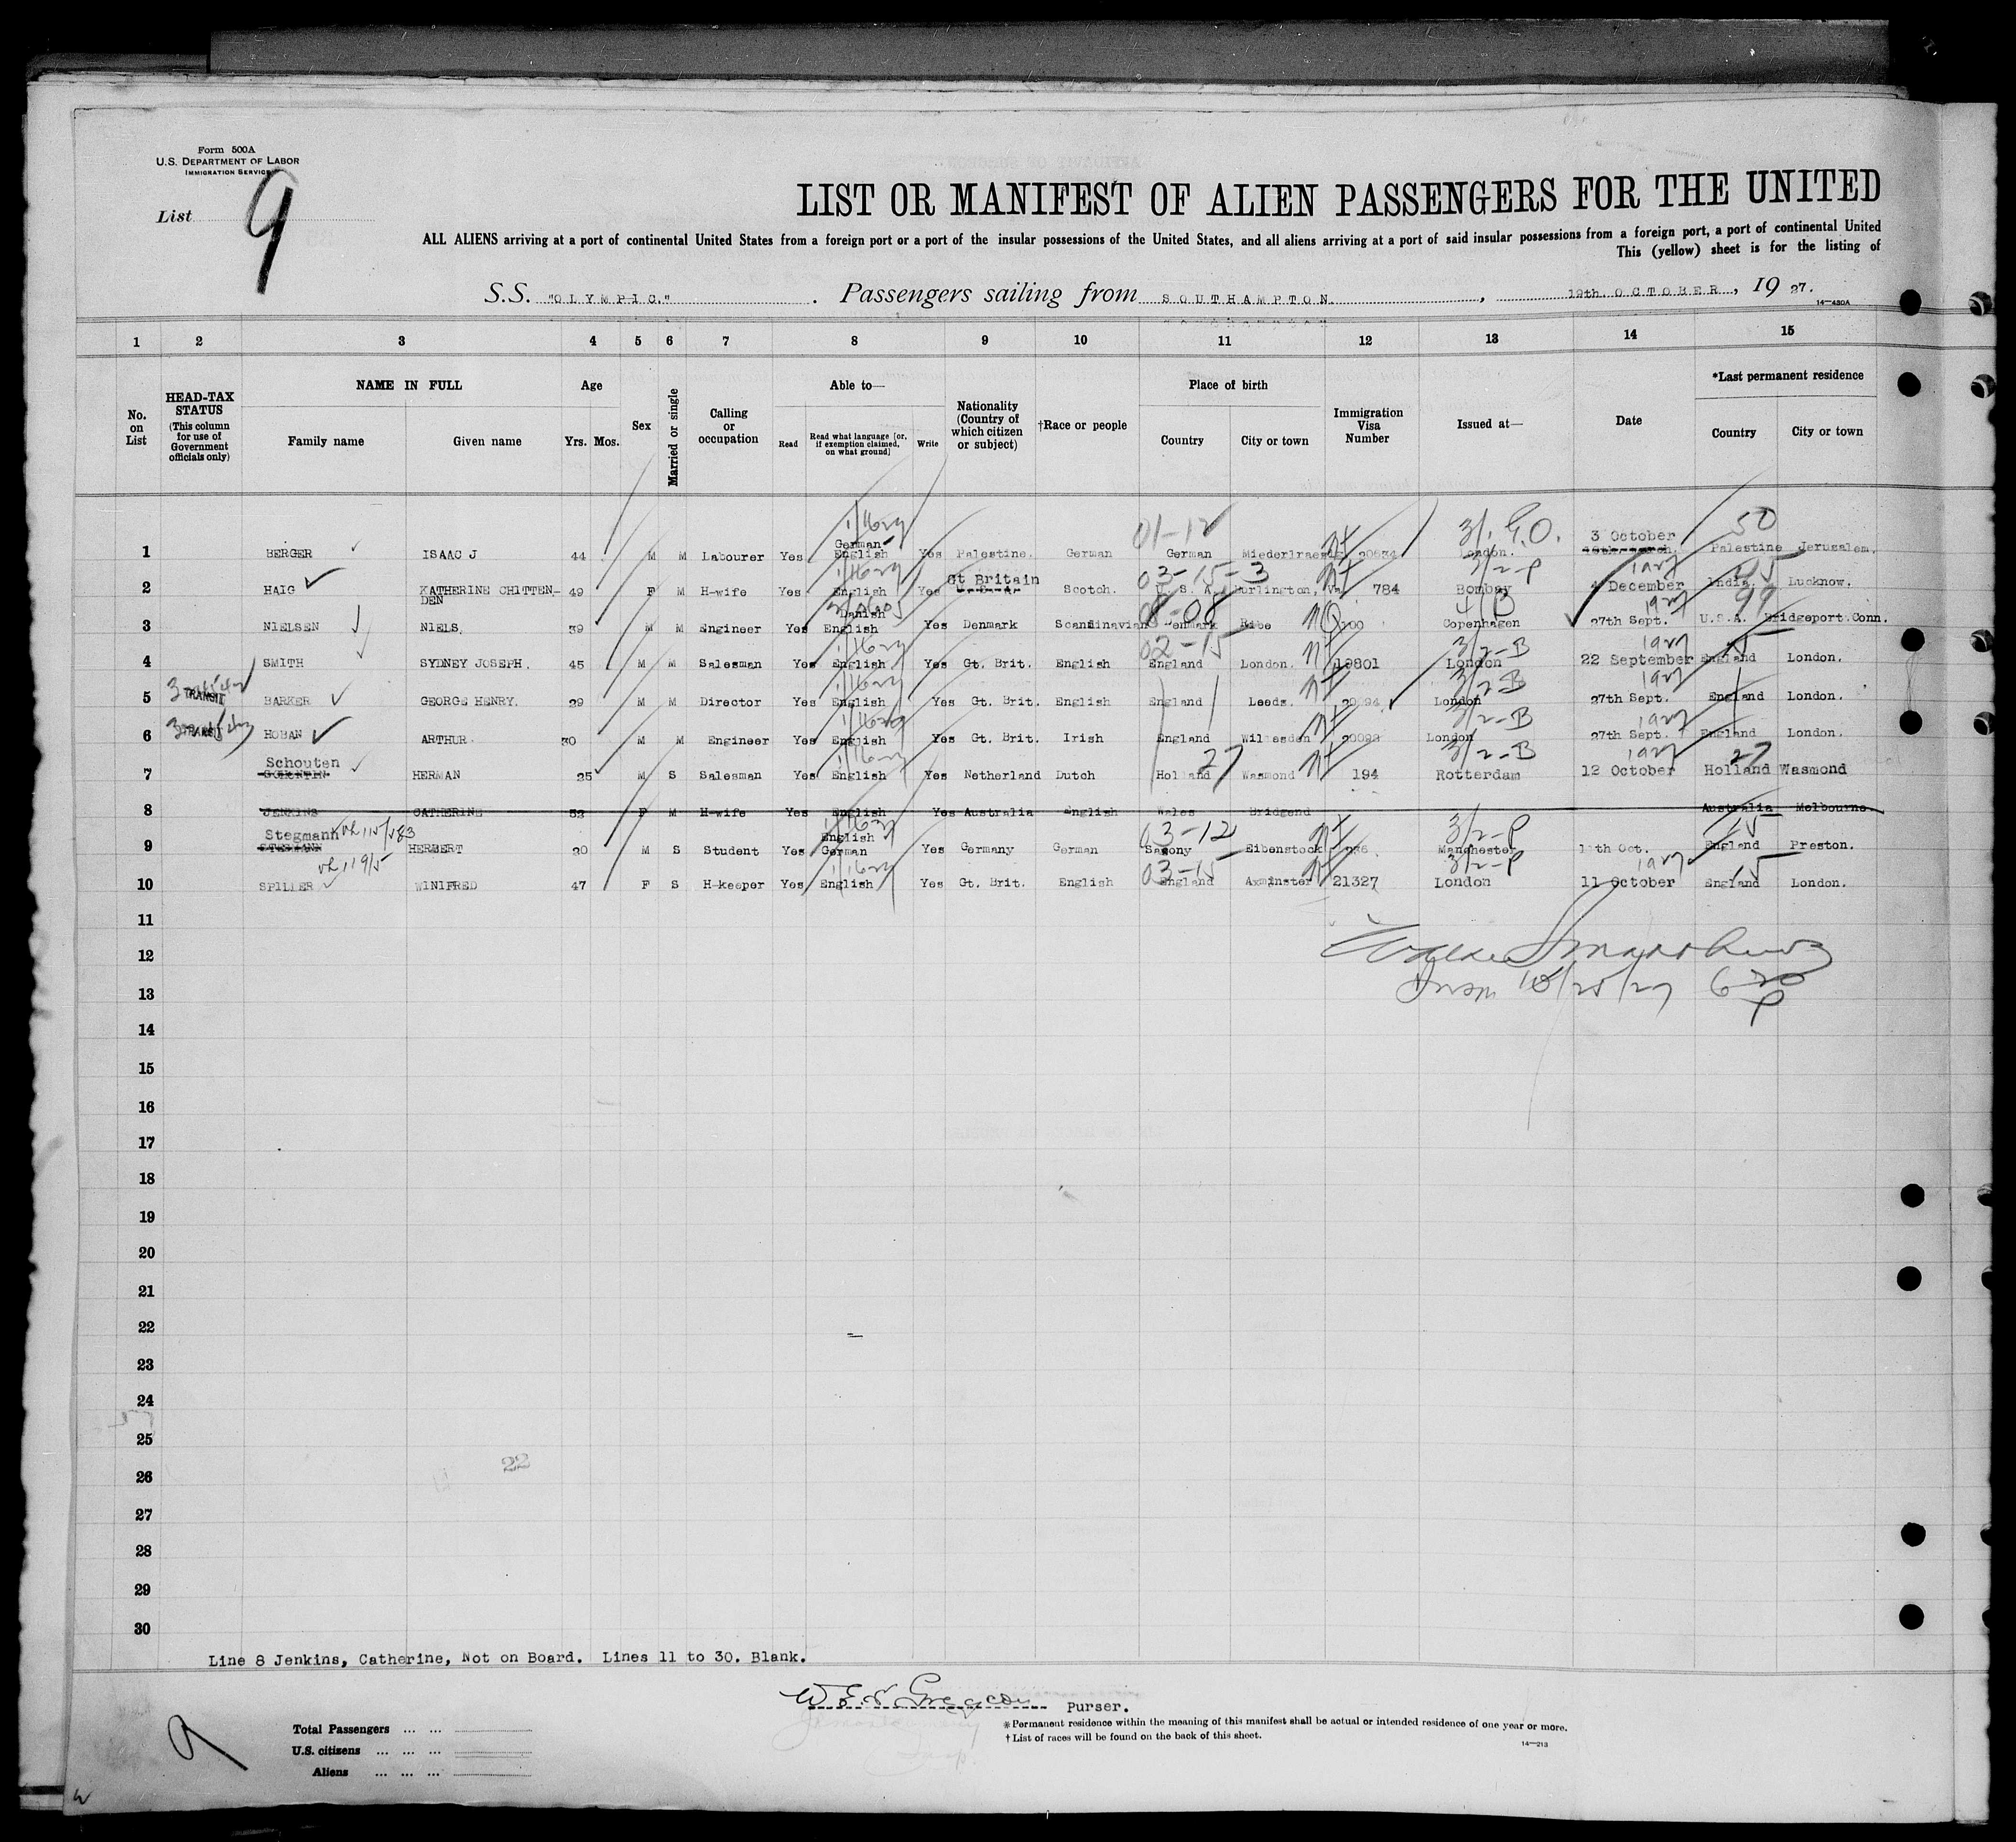 Form 500A
U.S. DEPARTMENT OF LABOR
IMMIGRATION SERVICE
List 9
LIST OR MANIFEST OF ALIEN PASSENGERS FOR THE UNITED
ALL ALIENS arriving at a port of continental United States from a foreign port or a port of the insular possessions of the United States, and all aliens arriving at a port of said insular possessions from a foreign port, a port of continental United
This (yellow) sheet is for the listing of
S.S. "OLYMPIC." Passengers sailing from SOUTHAMPTON, 19th. OCTOBER, 1927.
14—430A
1 2 3 4 5 6 7 8 9 10 11 12 13 14 15
No. on List
HEAD-TAX STATUS (This column for use of Government officials only)
NAME IN FULL
Family name Given name
Age
Yrs. Mos.
Sex
Married or single
Calling or occupation
Able to—
Read Read what language [or, if exemption claimed, on what ground] Write
Nationality (Country of which citizen or subject)
†Race or people
Place of birth
Country City or town
Immigration Visa Number
Issued at—
Date
*Last permanent residence
Country City or town
01-12 3/. G.O. 50
German 3 October
1 BERGER ISAAC J 44 M M Labourer Yes English Yes Palestine. German German London. Palestine Jerusalem.
03-15-3 3/2-P 1927
Gt Britain
2 HAIG KATHERINE CHITTENDEN 49 F M H-wife Yes English Yes U.S.A. Scotch. U.S.A. Burlington, Va 784 Bombay 4 December India Lucknow.
Danish 4/B 1927 99
3 NIELSEN NIELS. 39 M M Engineer Yes English Yes Denmark Scandinavian Denmark Ribe Copenhagen 27th Sept. U.S.A. Bridgeport.Conn.
02-15 3/2-B 1927
4 SMITH SYDNEY JOSEPH. 45 M M Salesman Yes English Yes Gt. Brit. English England London. 19801 London 22 September England London.
TRANSIT 3/2-B 1927
5 BARKER GEORGE HENRY. 29 M M Director Yes English Yes Gt. Brit. English England Leeds. London 27th Sept. England London.
TRANSIT 3/2-B 1927
6 HOBAN ARTHUR 30 M M Engineer Yes English Yes Gt. Brit. Irish England Willesden London 27th Sept. England London.
Schouten 27 3/2-B 1927 27
7 HERMAN 25 M S Salesman Yes English Yes Netherland Dutch Holland Wasmond 194 Rotterdam 12 October Holland Wasmond
8 JENKINS CATHERINE 52 F M H-wife Yes English Yes Australia English Wales Bridgend Australia Melbourne.
Stegmann English 03-12 3/2-P 15
9 HERBERT 20 M S Student Yes German Yes Germany German Saxony Eibenstock Manchester England Preston.
03-15 3/2-P 1927 15
10 SPILLER WINIFRED 47 F S H-keeper Yes English Yes Gt. Brit. English England Axminster 21327 London 11 October England London.
11
12
13 10/25/27 6 20 P
14
15
16
17
18
19
20
21
22
23
24
25
26 22
27
28
29
30
Line 8 Jenkins, Catherine, Not on Board. Lines 11 to 30. Blank.
Purser.
9
Total Passengers ... ...
U.S. citizens ... ... ...
Aliens ... ... ...
*Permanent residence within the meaning of this manifest shall be actual or intended residence of one year or more.
†List of races will be found on the back of this sheet.
14—213